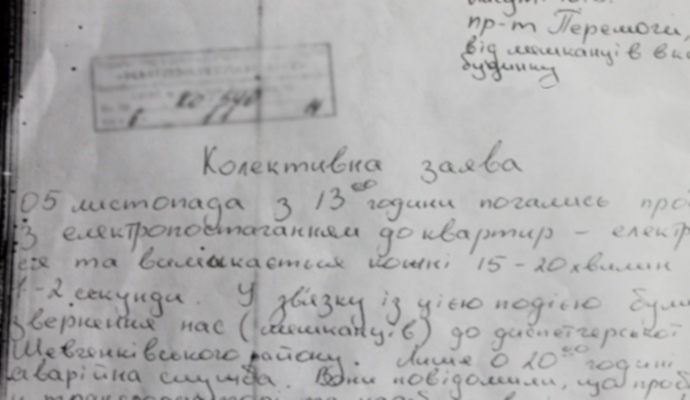 пр-т Перемоги,
від мешканців
будинку
Колективна заява
05 листопада з 13⁰⁰ години почались про
З електропостачанням до квартир - електр
ся та вимикається кожні 15-20 хвилин
1-2 секунди. У зв'язку із цією подією були
звернення нас (мешканців) до диспетчерської
Шевченківського району. Лише о 20⁰⁰ годині
аварійна служба. Вони повідомили, що проб